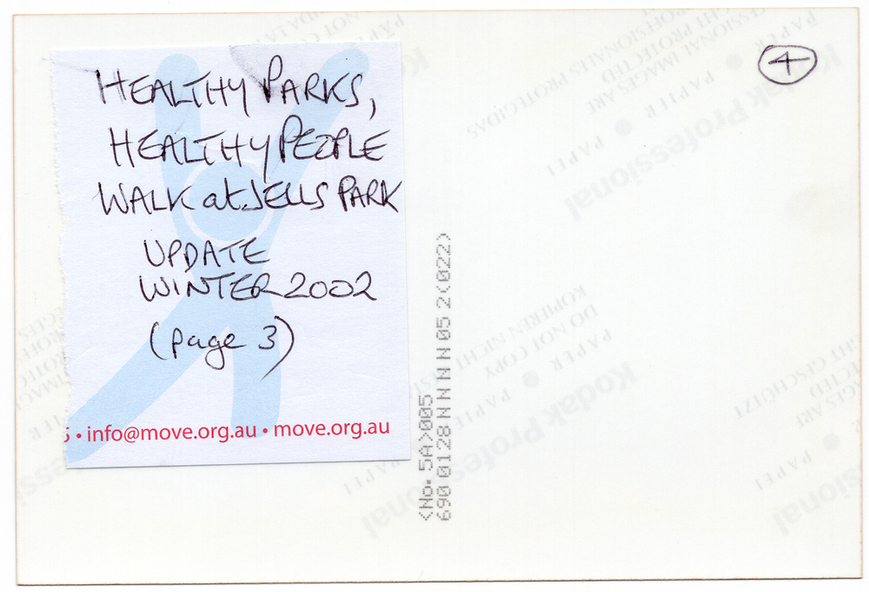 HEALTHY PARKS,
HEALTHY PEOPLE
WALK at JELLS PARK
UPDATE
WINTER 2002
(page 3)
• info@move.org.au • move.org.au
4
<No. 5A>005
690 0128 N N N N N 05 2(022)
Kodak Professional
PAPER • PAPIER • PAPEL
DO NOT COPY
KOPIEREN NICHT
Kodak Professional